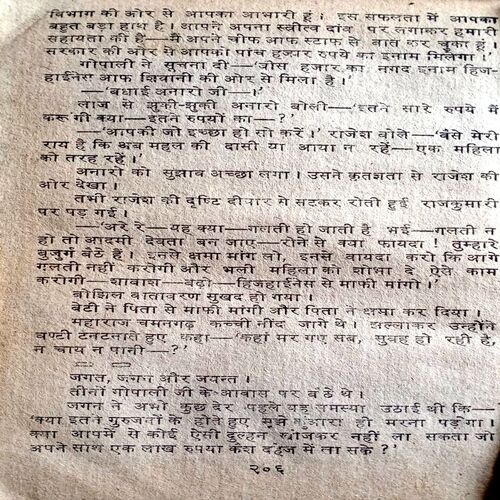 विभाग की ओर से आपका आभारी हूं। इस सफलता में आपका
बहुत बड़ा हाथ है। आपने अपना स्त्रीत्व दांव पर लगाकर हमारी
सहायता की है—मैं अपने चीफ आफ स्टाफ से बात कर चुका हूं।
सरकार की ओर से आपको पांच हजार रुपये का इनाम मिलेगा।'
गोपाली ने सूचना दी—'बीस हजार का नगद इनाम हिज-
हाईनेस आफ शिवानी की ओर से मिला है।'
—'बधाई अनारो जी—।'
लाज से झुकी-झुकी अनारो बोली—'इतने सारे रुपये मैं
करूंगी क्या—इतने रुपयों का—?'
—'आपकी जो इच्छा हो सो करें।' राजेश बोले—'वैसे मेरी
राय है कि अब महल की दासी या आया न रहें—एक महिला
की तरह रहें।'
अनारो को सुझाव अच्छा लगा। उसने कृतज्ञता से राजेश की
ओर देखा।
तभी राजेश की दृष्टि दीवार से सटकर रोती हुई राजकुमारी
पर पड़ गई।
—'अरे रे—यह क्या—गलती हो जाती है भई—गलती न
हो तो आदमी देवता बन जाए—रोने से क्या फायदा! तुम्हारे
बुजुर्ग बैठे हैं। इनसे क्षमा मांग लो, इनसे वायदा करो कि आगे
गलती नहीं करोगी और भली महिला को शोभा दे ऐसे काम
करोगी—शाबाश—बढ़ो—हिजहाईनेस से माफी मांगो।'
बोझिल वातावरण सुखद हो गया।
बेटी ने पिता से माफी मांगी और पिता ने क्षमा कर दिया।
महाराज चमनगढ़ कच्ची नींद जागे थे। झल्लाकर उन्होंने
घण्टी टनटनाते हुए कहा—'कहां मर गए सब, सुबह हो रही है,
न चाय न पानी—?'
जगत, जगन और जयन्त।
तीनों गोपाली जी के आवास पर बैठे थे।
जगन ने अभी कुछ देर पहले यह समस्या उठाई थी कि—
'क्या इतने गुरुजनों के होते हुए मुझे कुंआरा ही मरना पड़ेगा।
क्या आपमें से कोई ऐसी दुल्हन खोजकर नहीं ला सकता जो
अपने साथ एक लाख रुपया कैश दहेज में ला सके?'
२०६